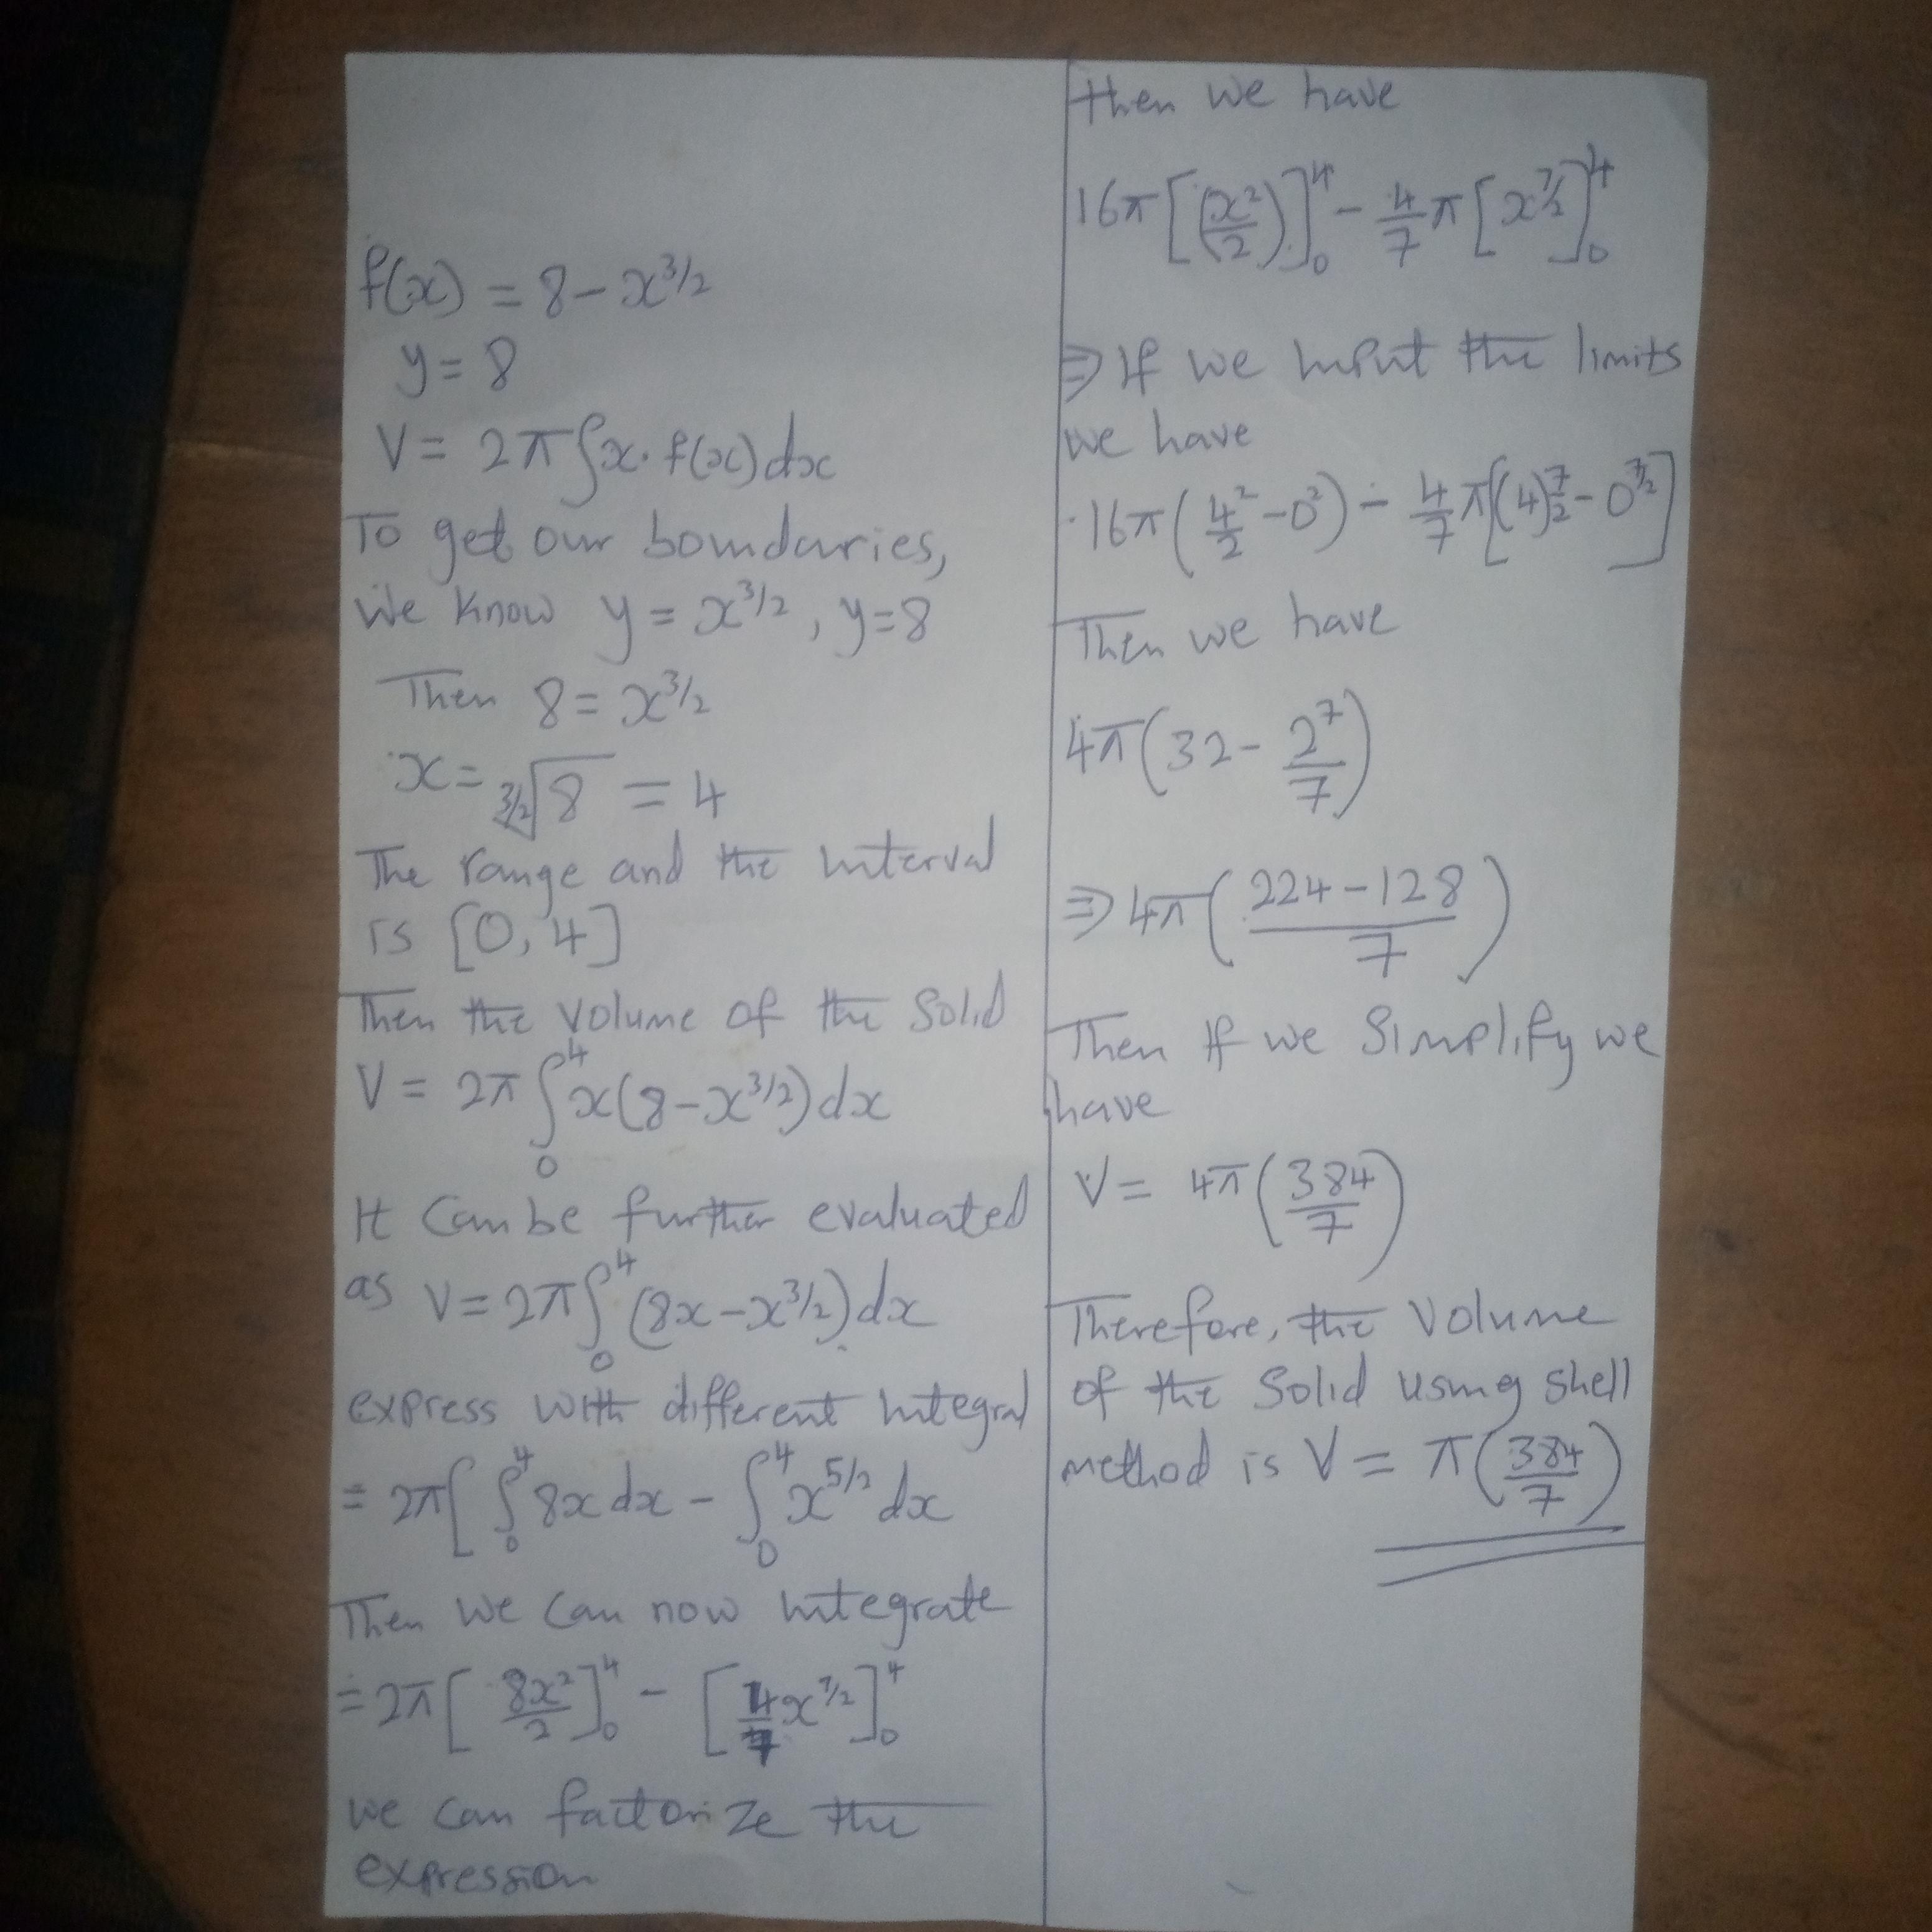 f(x) = 8 - x^3/2
y = 8
V = 2π∫x. f(x) dx
To get our boundaries,
We know y = x^3/2, y=8
Then 8 = x^3/2
x = 3/2√8 = 4
The range and the interval
is [0, 4]
Then the volume of the Solid
V = 2π ∫₀⁴ x(8-x^3/2) dx
It can be further evaluated
as V = 2π∫₀⁴ (8x - x^3/2) dx
express with different integral
= 2π[ ∫₀⁴ 8x dx - ∫₀⁴ x^5/2 dx
Then we can now integrate
= 2π[ 8x²/2 ]₀⁴ - [ 4/7 x^7/2 ]₀⁴
we can factorize the
expression
then we have
16π[(x²/2)]₀⁴ - 4/7 π[x^7/2]₀⁴
⇒ If we input the limits
we have
16π(4²/2 - 0²) - 4/7 π[(4)^7/2 - 0^7/2]
Then we have
4π(32 - 2^7/7)
⇒ 4π(224 - 128/7)
Then If we Simplify we
have
V = 4π(384/7)
Therefore, the Volume
of the Solid using shell
method is V = π(384/7)